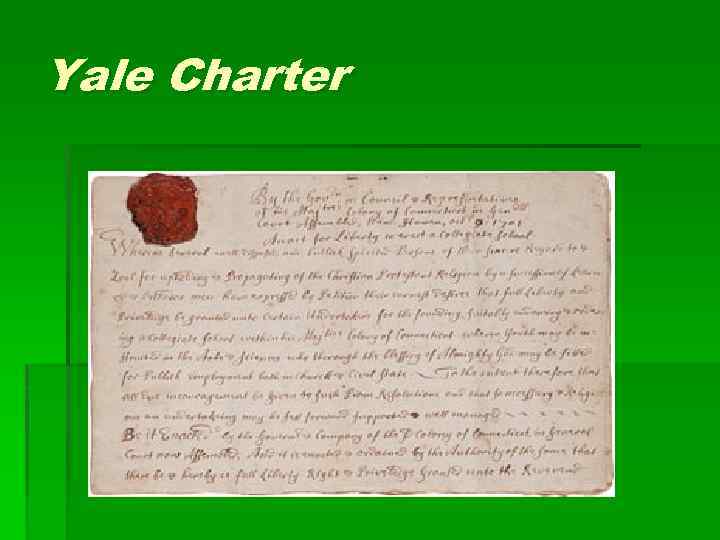 Yale Charter
By the Govrn in Council & Representatives
of his Majties Colony of Connecticot in Genrll
Court Assembled, New Haven, Octr 9: 1701
An act for Liberty to erect a Collegiate School
Whereas several well disposed, and Publick spirited Persons of their sincere Regard to &
Zeal for upholding & Propagating of the Christian Protestant Religion by a succession of Learn
ed & Orthodox men have expressed by Petition their earnest desires that full Liberty and
Priviledge be granted unto Certain Undertakers for the founding, suitably endowing & order
ing a Collegiate School within his Majties Colony of Connecticot wherein Youth may be in
structed in the Arts & Sciences who through the blessing of Almighty God may be fitted
for Publick employment both in Church & Civil State To the intent therefore that
all due incouragement be given to such Pious Resolutions and that so necessary & Religious
an undertaking may be set forward supported & well managed
Be it Enacted by the Governour & Company of the sd Colony of Connecticot, in General
Court now Assembled, And it is enacted & ordained by the Authority of the same that
there be & hereby is full Liberty Right & Priviledge Granted unto the Reverend